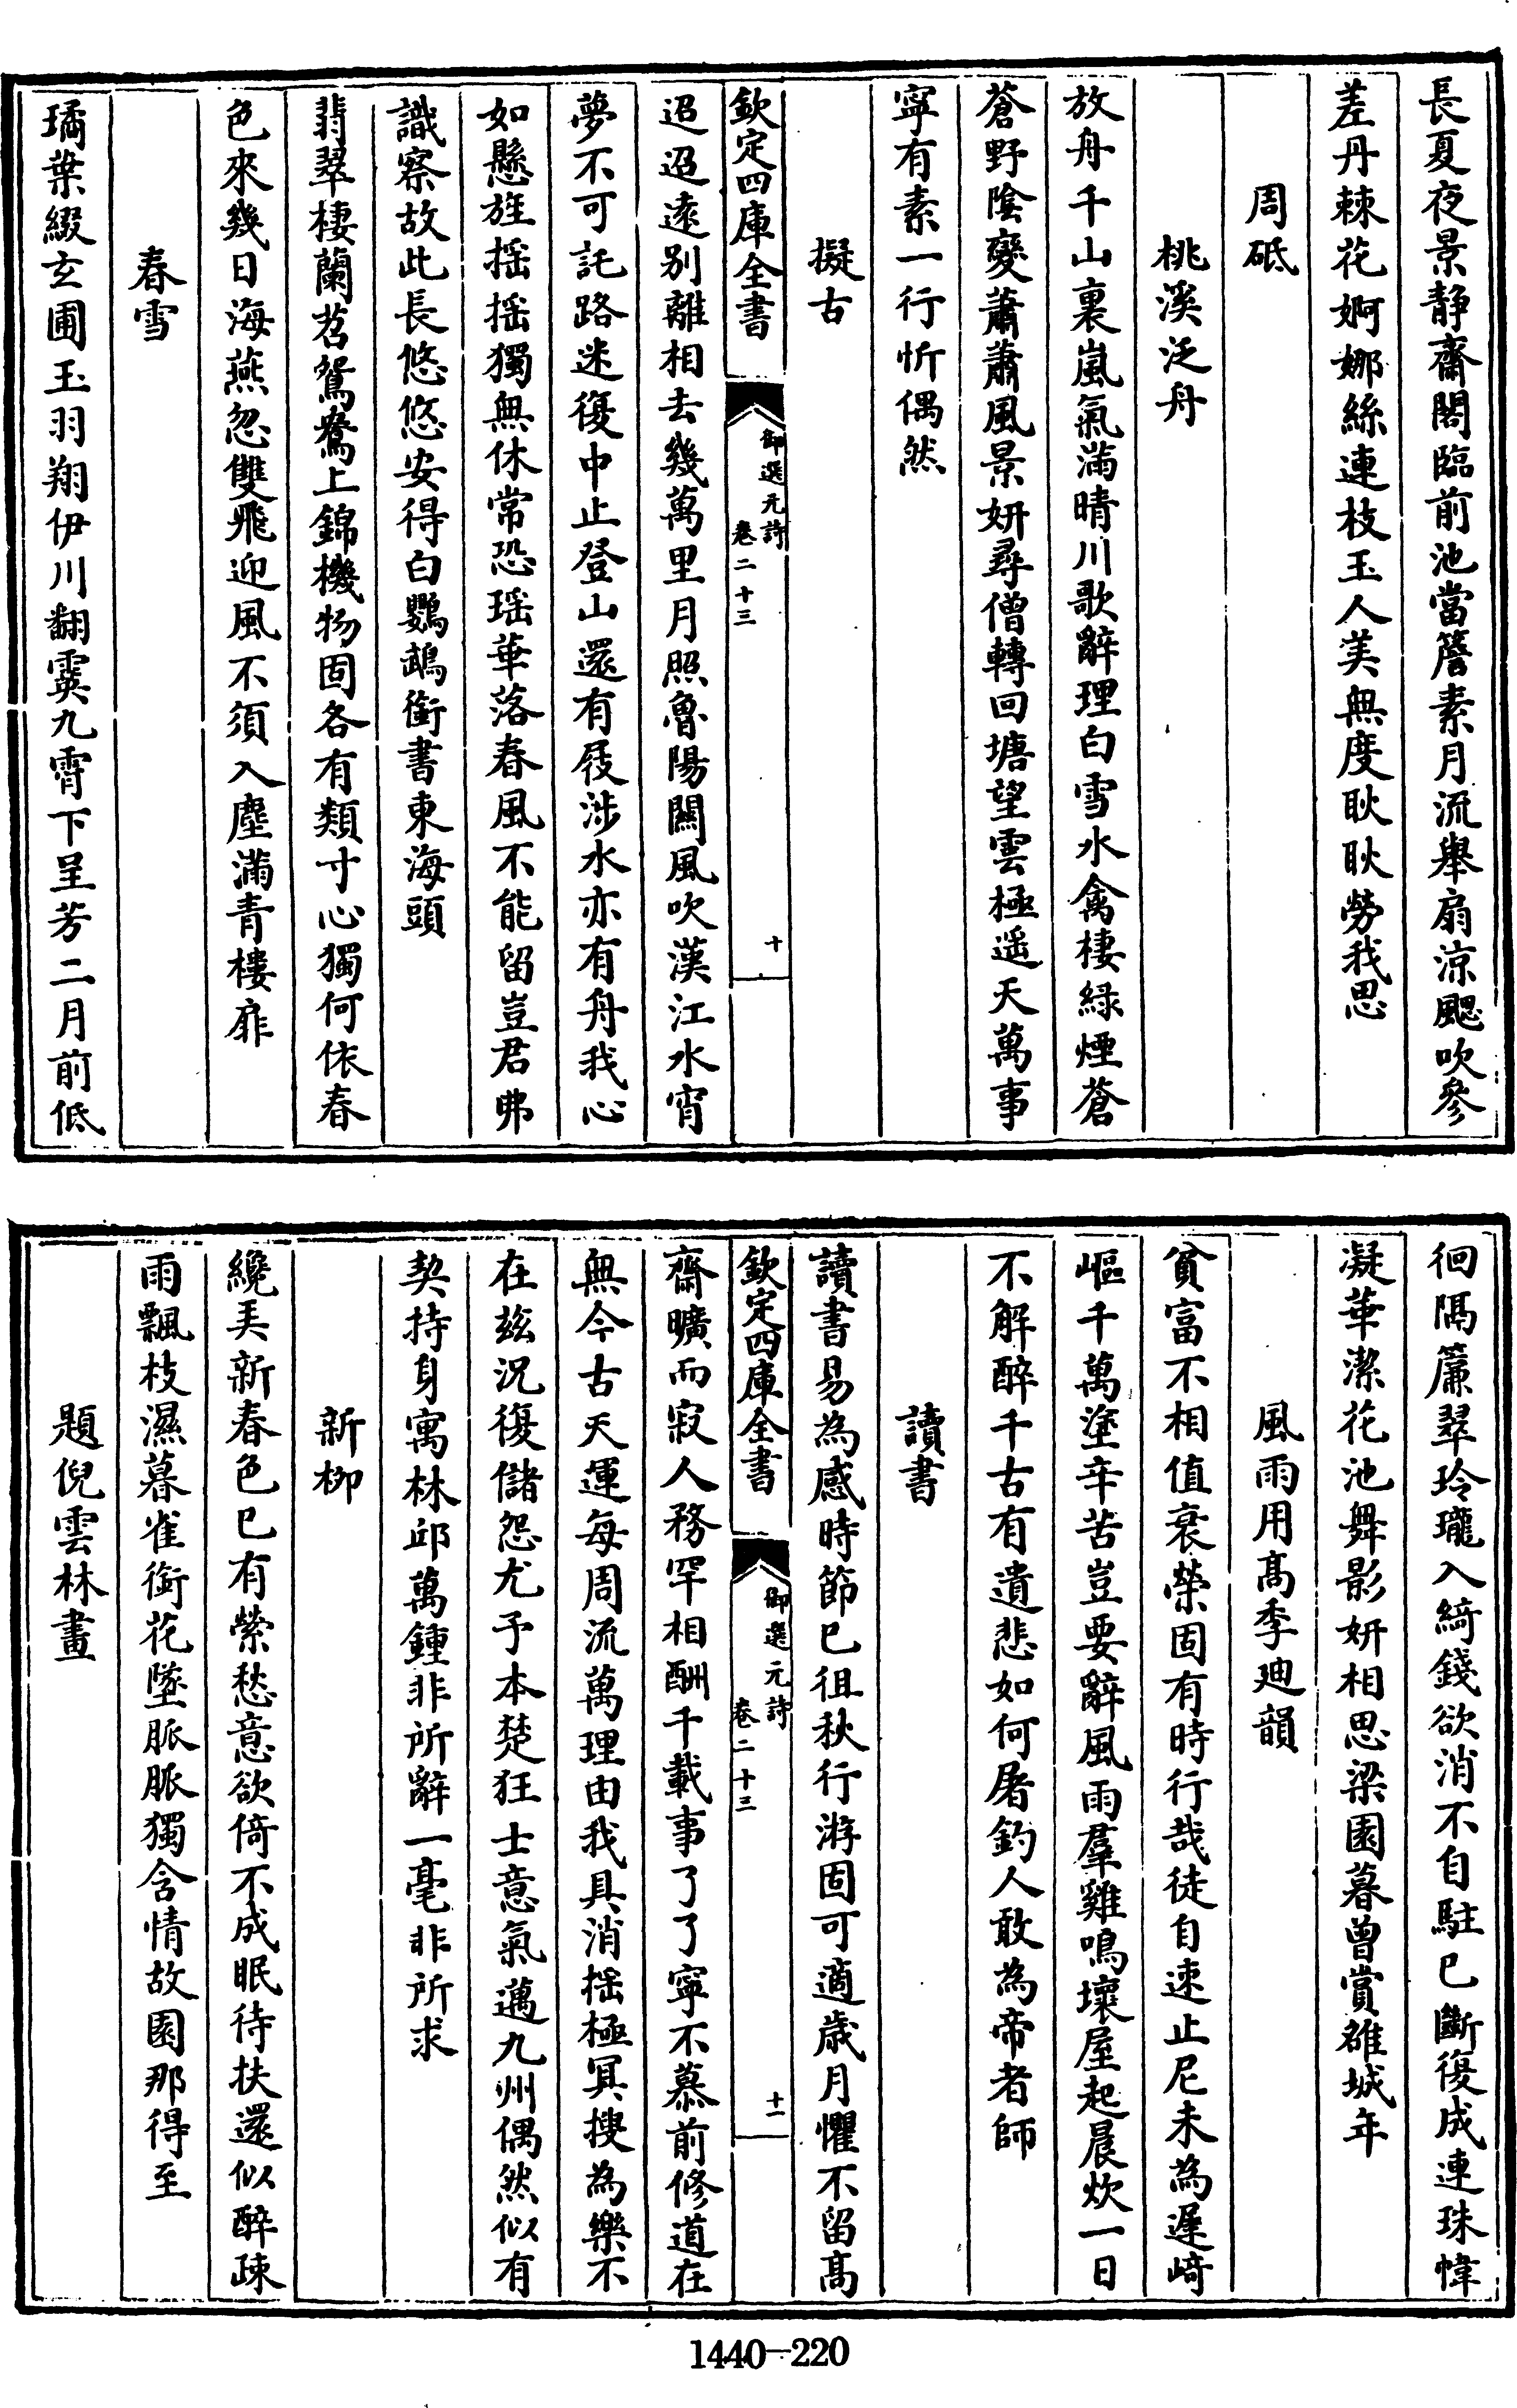 長夏夜景静齋閣臨前池當簷素月流舉扇涼颸吹參
差丹棘花婀娜絲連枝玉人美無度耿耿勞我思
周砥
桃溪泛舟
放舟千山裏嵐氣滿晴川歌辭理白雪水禽棲綠煙蒼
蒼野陰變蕭蕭風景妍尋僧轉回塘望雲極遥天萬事
寧有素一行忻偶然
擬古
欽定四庫全書
御選元詩
卷二十三
十
迢迢遠别離相去幾萬里月照魯陽關風吹漢江水宵
夢不可託路迷復中止登山還有屐涉水亦有舟我心
如懸旌摇摇獨無休常恐瑶華落春風不能留豈君弗
識察故此長悠悠安得白鸚鵡銜書東海頭
翡翠棲蘭苕鴛鴦上錦機物固各有類寸心獨何依春
色來幾日海燕忽雙飛迎風不須入塵滿青樓扉
春雪
璚葉綴玄圃玉羽翔伊川翻霙九霄下呈芳二月前低
徊隔簾翠玲瓏入綺錢欲消不自駐已斷復成連珠幃
凝華潔花池舞影妍相思梁園暮曾賞雒城年
風雨用髙季廸韻
貧富不相值衰榮固有時行哉徒自速止尼未為遲﨑
嶇千萬塗辛苦豈要辭風雨羣雞鳴壞屋起晨炊一日
不解醉千古有遺悲如何屠釣人敢為帝者師
讀書
讀書易為感時節已徂秋行游固可適歳月懼不留髙
欽定四庫全書
御選元詩
卷二十三
十一
齋曠而寂人務罕相酬千載事了了寧不慕前修道在
無今古天運每周流萬理由我具消揺極冥搜為樂不
在兹況復儲怨尤予本楚狂士意氣邁九州偶然似有
契持身寓林邱萬鍾非所辭一毫非所求
新栁
纔美新春色已有縈愁意欲倚不成眠待扶還似醉疎
雨飄枝濕暮雀銜花墜脈脈獨含情故園那得至
題倪雲林畫
1440-220